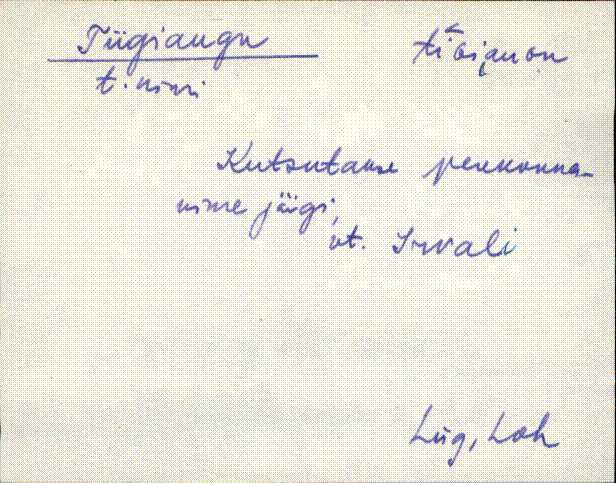 Tiigiaugu
t. nimi
Kutsutakse perekonna-
nime järgi,
vt. Irvali
Lüg, Loh